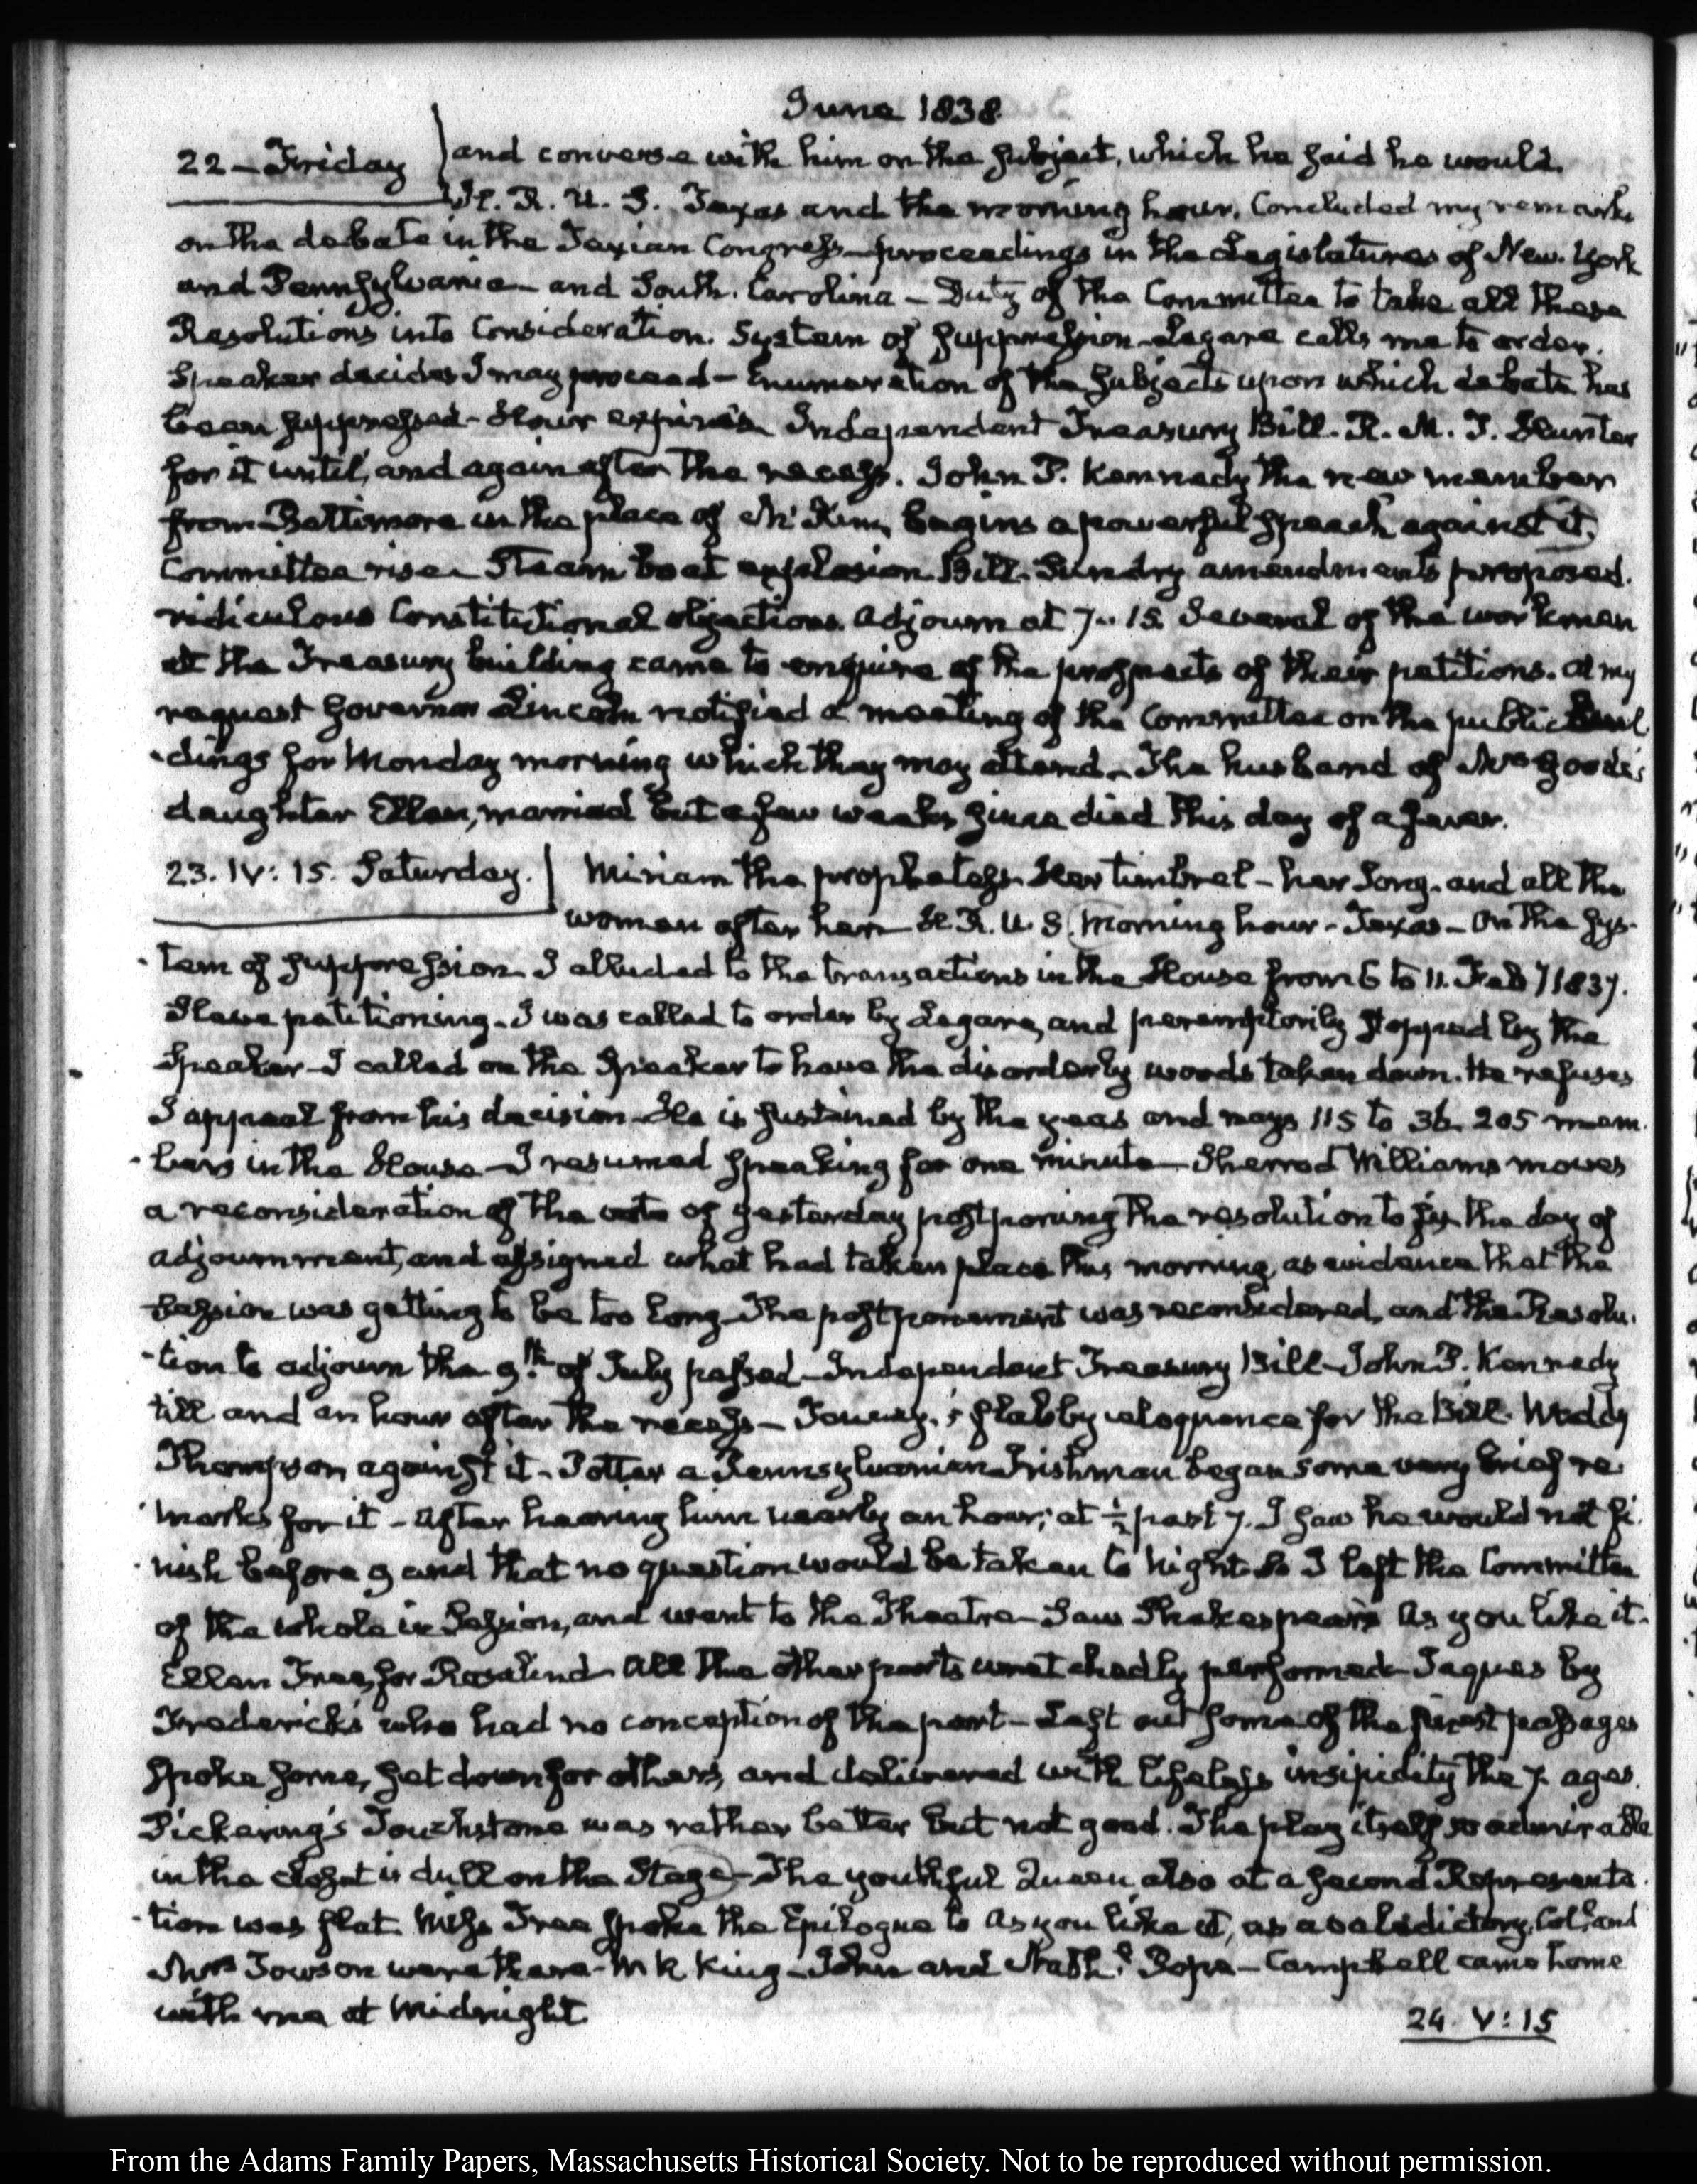 June 1838
22 - Friday
and converse with him on the subject, which he said he would.
H. R. U. S. Texas and the morning hour. Concluded my remarks
on the debate in the Texian Congress - proceedings in the Legislatures of New. York
and Pennsylvania - and South. Carolina - Duty of the Committee to take all these
Resolutions into Consideration. System of suppression - Legare calls me to order.
Speaker decides I may proceed - Enumeration of the subjects upon which debate has
been suppressed - Hour expires Independent Treasury Bill. R. M. T. Hunter
for it until, and again after the recess. John P. Kennedy the new member
from Baltimore in the place of McKim, begins a powerful speech against it.
Committee rise - Steam boat explosion Bill. Sundry amendments proposed.
ridiculous Constitutional objections. adjourn at 7.. 15. Several of the workmen
at the Treasury building came to enquire of the prospects of their petitions. at my
request Governor Lincoln notified a meeting of the Committee on the public Buil
-dings for Monday morning which they may attend - The husband of Mrs Goods's
daughter Ellen, married but a few weeks since died this day of a fever.
23. IV: 15. Saturday.
Miriam the prophetess - Her timbrel - her song - and all the
women after her - H. R. U. S. Morning hour - Texas - On the sys-
-tem of suppression I alluded to the transactions in the House from 6 to 11. Feby 1837.
Slave petitioning - I was called to order by Legare, and peremptorily stopped by the
Speaker - I called on the Speaker to have the disorderly words taken down. He refuses
I appeal from his decision - He is sustained by the yeas and nays 115 to 36. 205 mem.
-bers in the House - I resumed speaking for one minute - Sherrod Williams moves
a reconsideration of the vote of yesterday postponing the resolution to fix the day of
adjournment, and assigned what had taken place this morning, as evidence that the
session was getting to be too long - The postponement was reconsidered, and the Resolu.
-tion to adjourn the 9th of July passed - Independent Treasury Bill - John P. Kennedy
till and an hour after the recess - flabby eloquence for the Bill. Waddy
Thompson, against it - Potter a Pennsylvanian Irishman began some very brief re.
-marks for it - After hearing him nearly an hour; at ½ past 7. I saw he would not fi.
-nish before 9 and that no question would be taken to night. So I left the Committee
of the whole in Session, and went to the Theatre - Saw Shakespear's As you like it -
Ellen Tree, for Rosalind - All the other parts wretchedly performed - Jaques by
Fredericks who had no conception of the part - Left out some of the finest passages
spoke some, set down for others, and delivered with lifeless insipidity the 7. ages.
Pickering's Touchstone was rather better but not good. The play itself so admirable
in the closet is dull on the Stage - The youthful Queen also at a second Representa.
-tion was flat. Miss Tree spoke the Epilogue to As you like it, as a valedictory. Col. and
Mrs Towson were there - M R King - John and Pope - Campbell came home
with me at Midnight.
24. V: 15
From the Adams Family Papers, Massachusetts Historical Society. Not to be reproduced without permission.